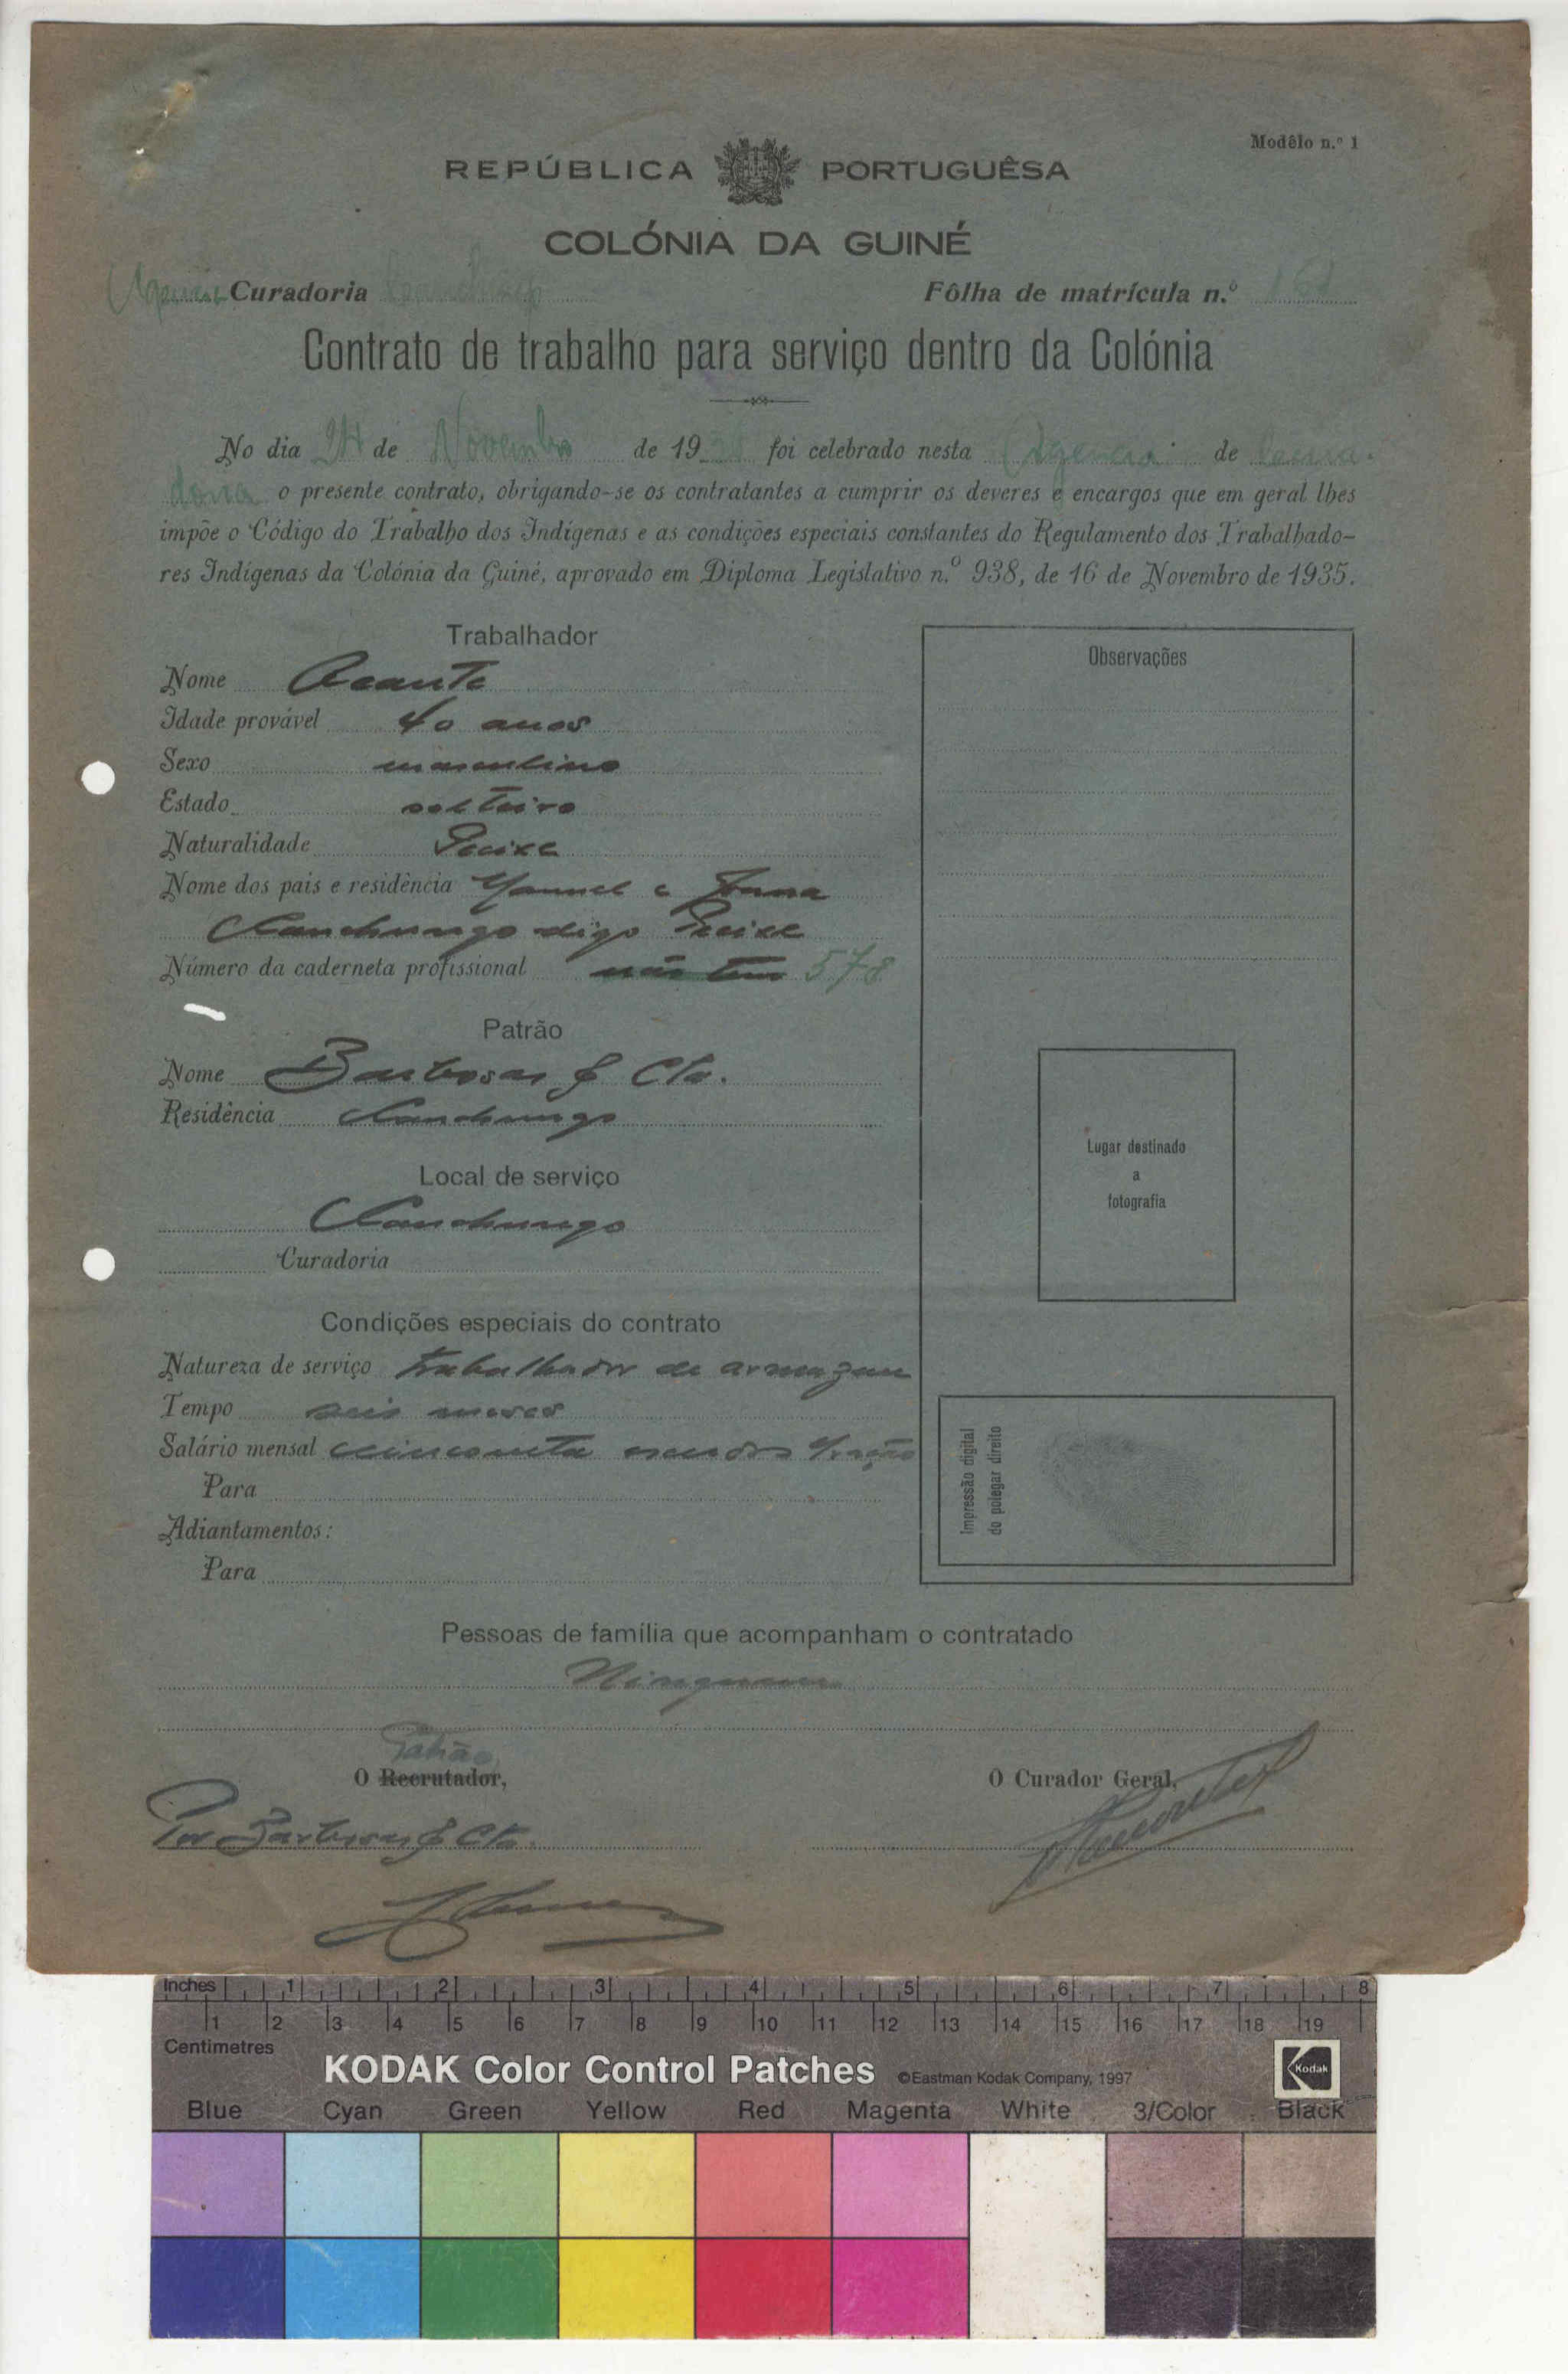 Modêlo n.º 1
REPÚBLICA PORTUGUÊSA
COLÓNIA DA GUINÉ
Curadoria
Fôlha de matrícula n.º
Contrato de trabalho para serviço dentro da Colónia
No dia 24 de Novembro de 19 foi celebrado nesta Agencia de
o presente contrato, obrigando-se os contratantes a cumprir os deveres e encargos que em geral lhes
impõe o Código do Trabalho dos Indígenas e as condições especiais constantes do Regulamento dos Trabalhado-
res Indígenas da Colónia da Guiné, aprovado em Diploma Legislativo n.º 938, de 16 de Novembro de 1935.
Trabalhador
Nome
Idade provável 40 anos
Sexo masculino
Estado solteiro
Naturalidade
Nome dos pais e residência Manuel e
Canchungo digo
Número da caderneta profissional não tem 578
Patrão
Nome Barbosas & Cta.
Residência Canchungo
Local de serviço
Canchungo
Curadoria
Condições especiais do contrato
Natureza de serviço trabalhador de armazem
Tempo seis meses
Salário mensal cincoenta escudos
Para
Adiantamentos:
Para
Observações
Lugar destinado
a
fotografia
Impressão digital
do polegar direito
Pessoas de família que acompanham o contratado
Ninguem
Patrão
O Recrutador,
O Curador Geral,
Por Barbosas & Cta.
Inches 1 2 3 4 5 6 7 8
1 2 3 4 5 6 7 8 9 10 11 12 13 14 15 16 17 18 19
Centimetres
KODAK Color Control Patches ©Eastman Kodak Company, 1997 Kodak
Blue Cyan Green Yellow Red Magenta White 3/Color Black